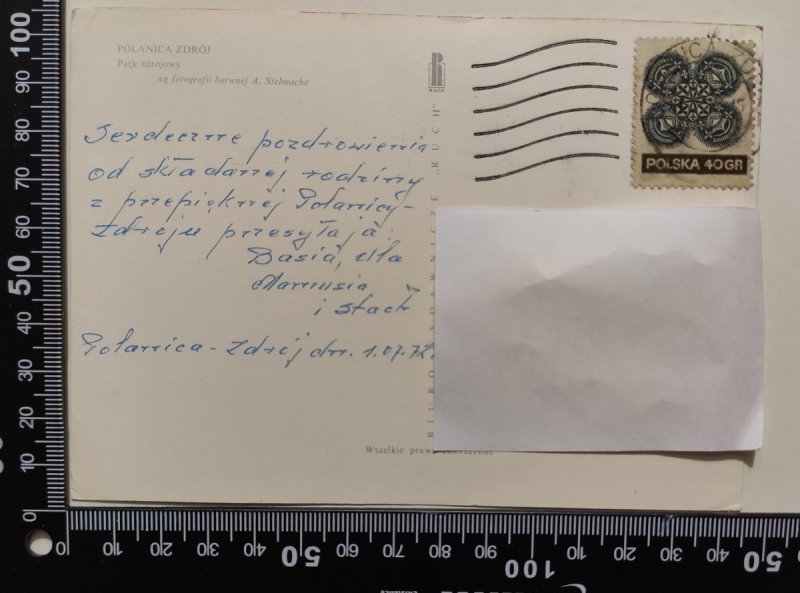 POLANICA ZDRÓJ
Park zdrojowy
wg fotografii barwnej A. Stelmacha
RUCH
POLSKA 40 GR
Serdeczne pozdrowienia
od składanej rodziny
z przepięknej Polanicy-
Zdroju przesyłają:
Basia, Ula
Mamusia
i Stach
Polanica-Zdrój dn. 1.07.72.
BIURO WYDAWNICZE „RUCH”
Wszelkie prawa zastrzeżone
100
90
80
70
60
50
40
30
20
10
0
0 10 20 30 40 50 60 70 80 90 100 10 20 30 40 50